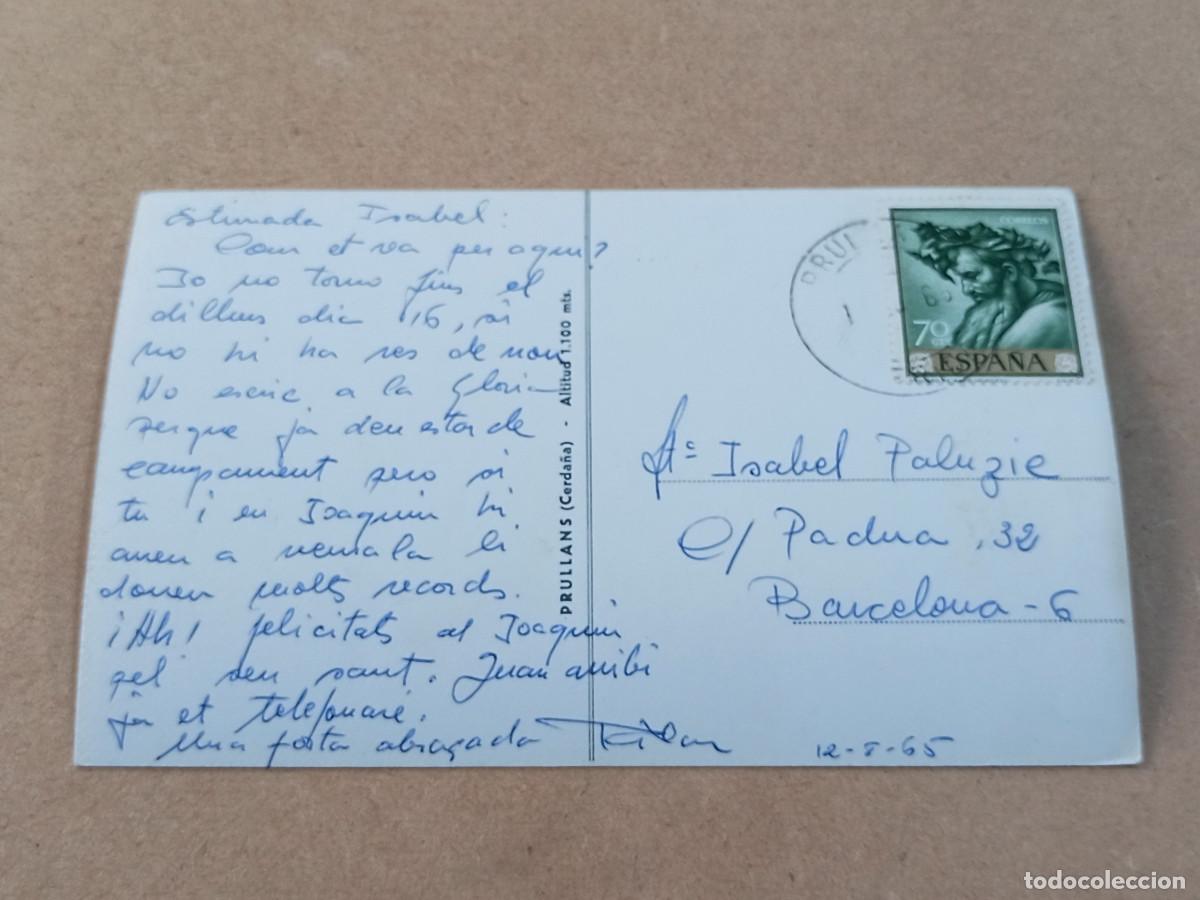 Estimada Isabel:
Com et va per aquí?
Jo no torno fins el
dilluns dia 16, si
no hi ha res de nou
No escric a la Gloria
perque ja deu estar de
campament pero si
tu i en Joaquin hi
aneu a veurala li
doneu molts records.
¡Ah! felicitats al Joaquin
pel seu sant. Quan arribi
ja et telefonaré.
Una forta abraçada
PRULLANS (Cerdaña) - Altitud 1.100 mts.
PRUL
CORREOS
70
CTS
ESPAÑA
Sta Isabel Paluzie
c/ Padua, 32
Barcelona-6
12-8-65
todocoleccion